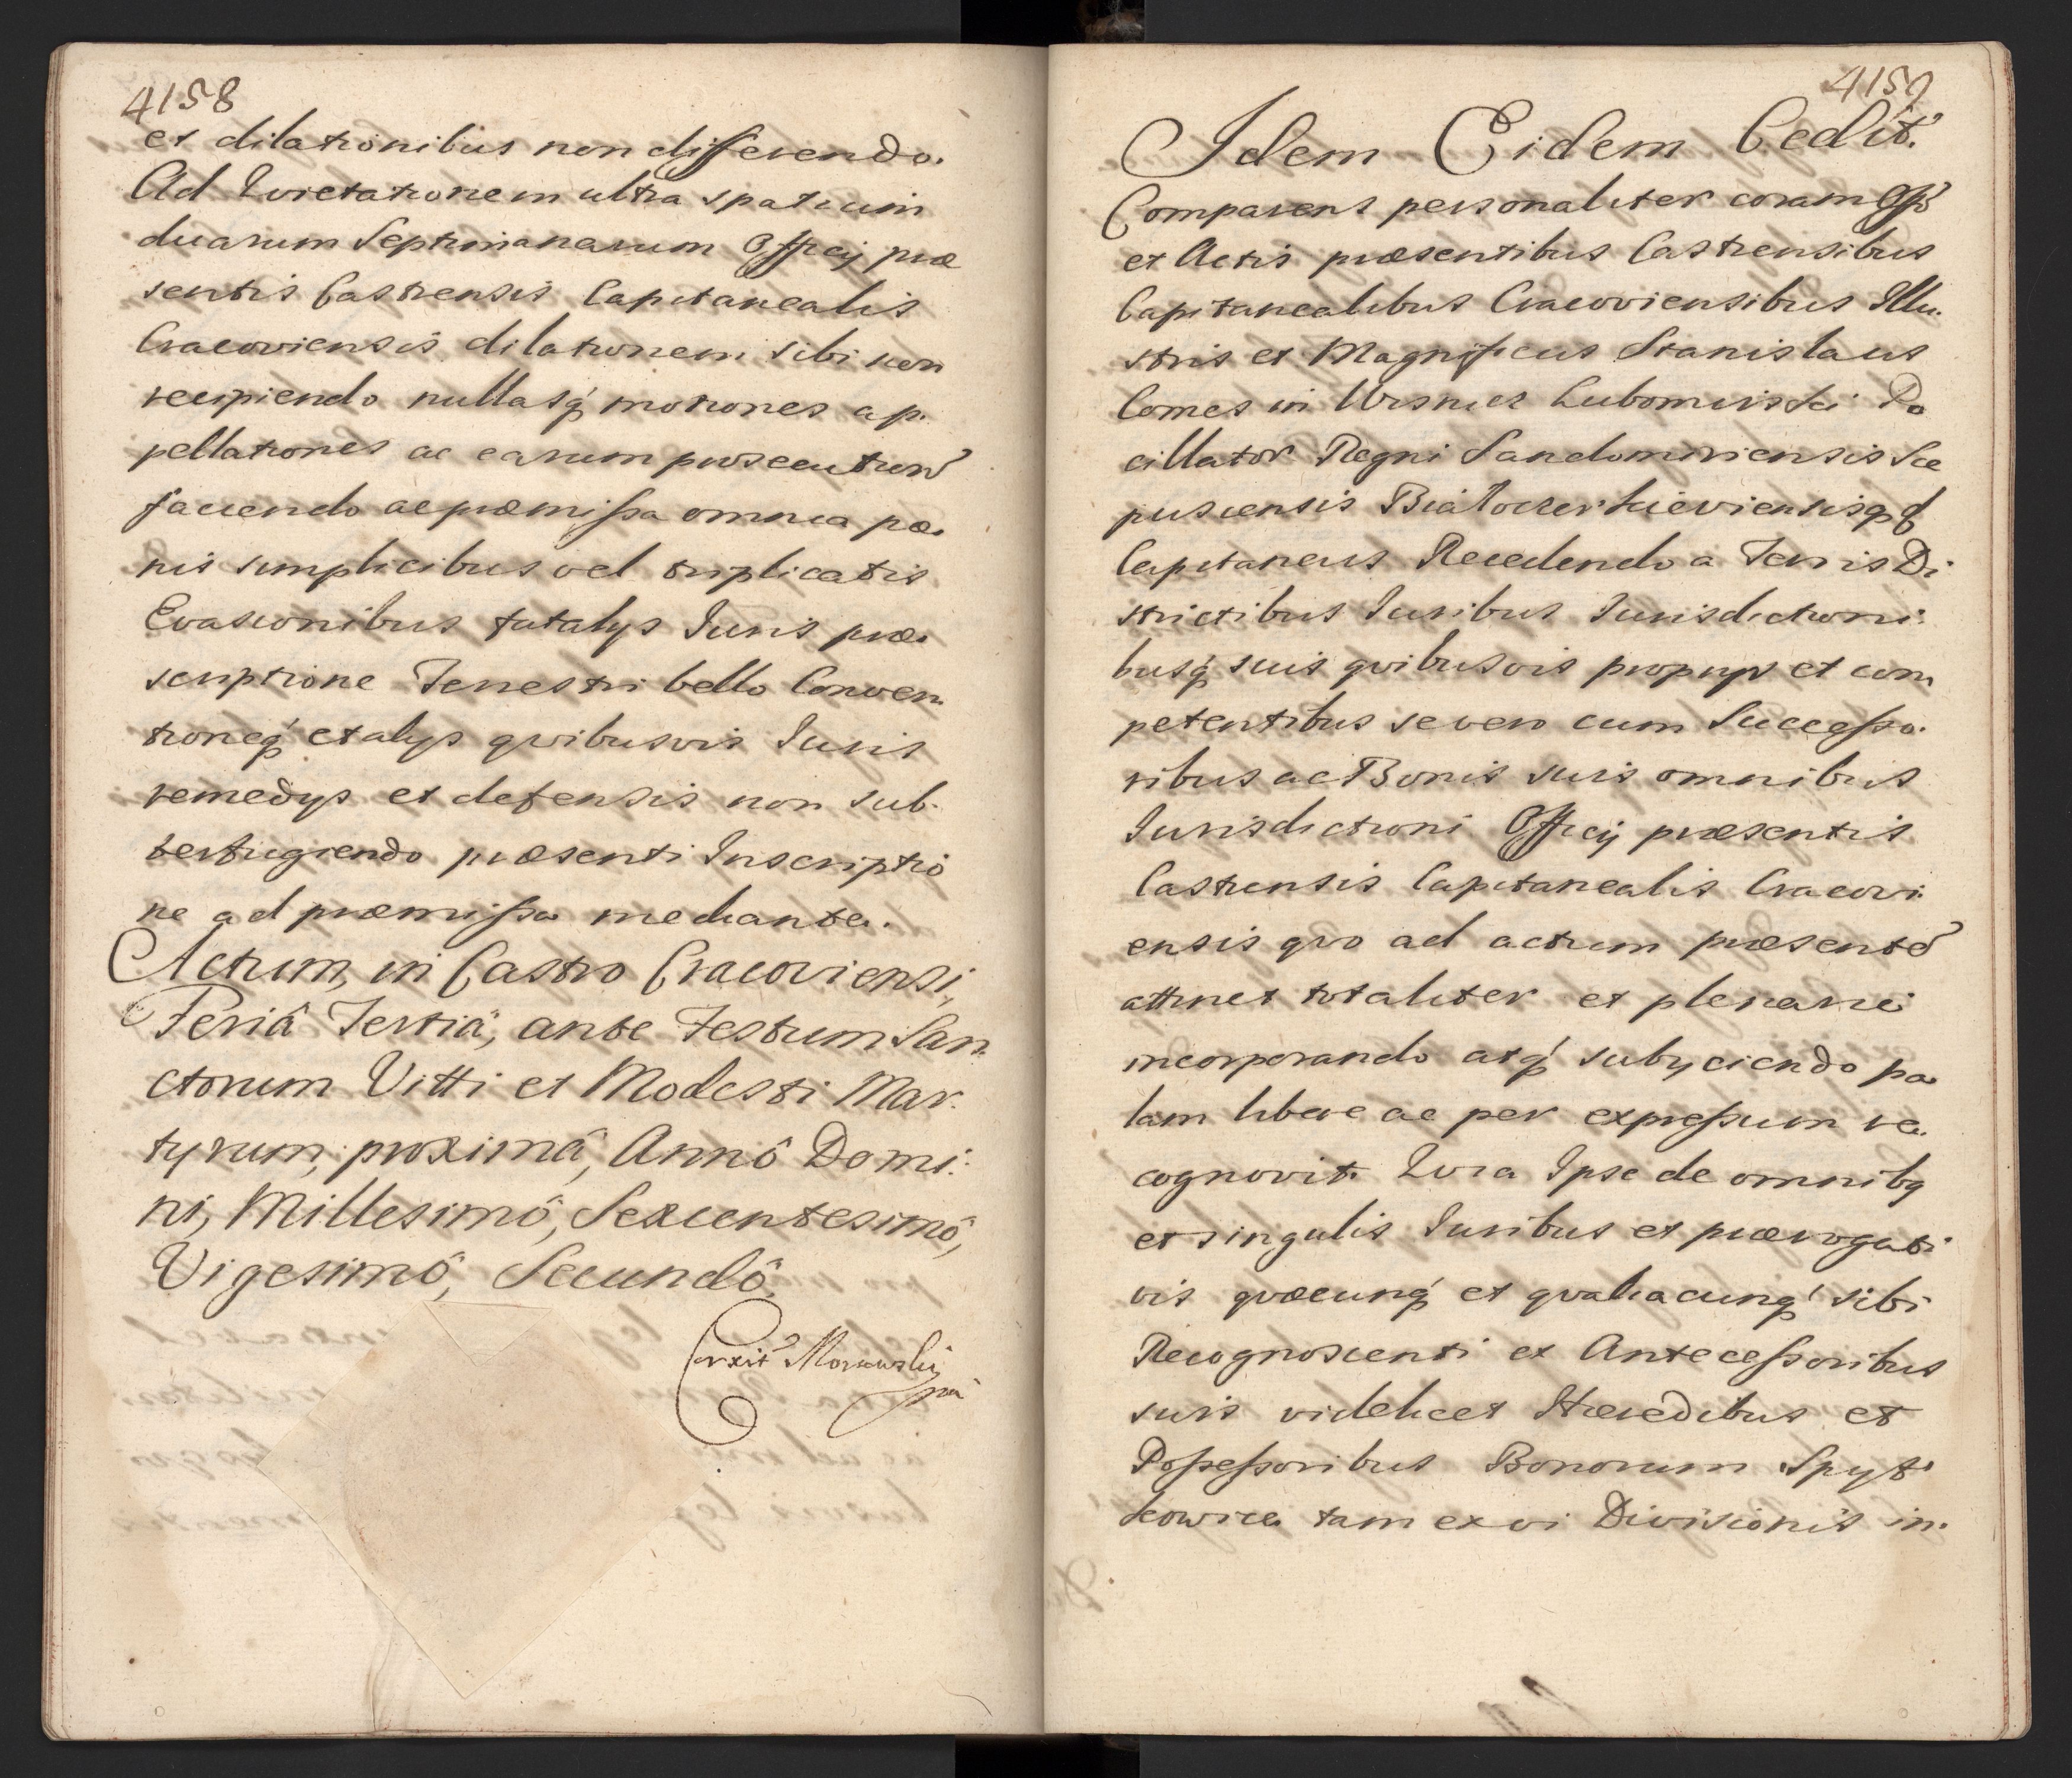 4158
et dilationibus non differendo.
Ad Qvietationem ultra spatium
duarum Septimanarum Officij præ
sentis Castrensis Capitanealis
Cracoviensis dilationem sibi non
recipiendo nullasq́ motiones ap.
pellationes ac earum prosecution̄
faciendo ac præmissa omnia pæ.
nis simplicibus vel triplicatis
Evasionibus fatalys Juris præ.
scriptione Terrestri bello Conven.
tioneq́ et alys qvibusvis Juris
remedys et defensis non sub.
terfugiendo præsenti Inscriptio
ne ad præmissa mediante.
Actum, in Castro Cracoviensi,
Feriâ Tertiâ, ante Festum San.
ctorum Vitti et Modesti Mar.
tyrum, proximâ, Annô Domi:
ni, Millesimô, Sexcentesimô,
Vigesimô, Secundô.
Correxit Morawski
mp
4159
Idem Eidem Cedit.
Comparens personaliter coram Offō
et Actis præsentibus Castrensibus
Capitanealibus Cracoviensibus Illu.
stris et Magnificus Stanislaus
Comes in Wisnicz Lubomirski Po
cillator Regni Sandomiriensis Sce
pusiensis Białocerkieviensisq́
Capitaneus Recedendo a Terris Di
strictibus Juribus Jurisdictioni.
busq́ suis qvibusvis propriys et com
petentibus se vero cum Successo.
ribus ac Bonis suis omnibus
Jurisdictioni Officij præsentis
Castrensis Capitanealis Cracovi.
ensis qvo ad actum præsentē
attinet totaliter et plenarie
incorporando atq́ subyciendo pa
lam libere ac per expressum re.
cognovit. Qvia Ipse de omnibq
et singulis Juribus et prærogati
vis qvæcunq́ et qvaliacunq́ sibi
Recognoscenti ex Antecessoribus
suis videlicet Hæredibus et
Possessoribus Bonorum Spyt
kowice tam ex vi Divisionis in.